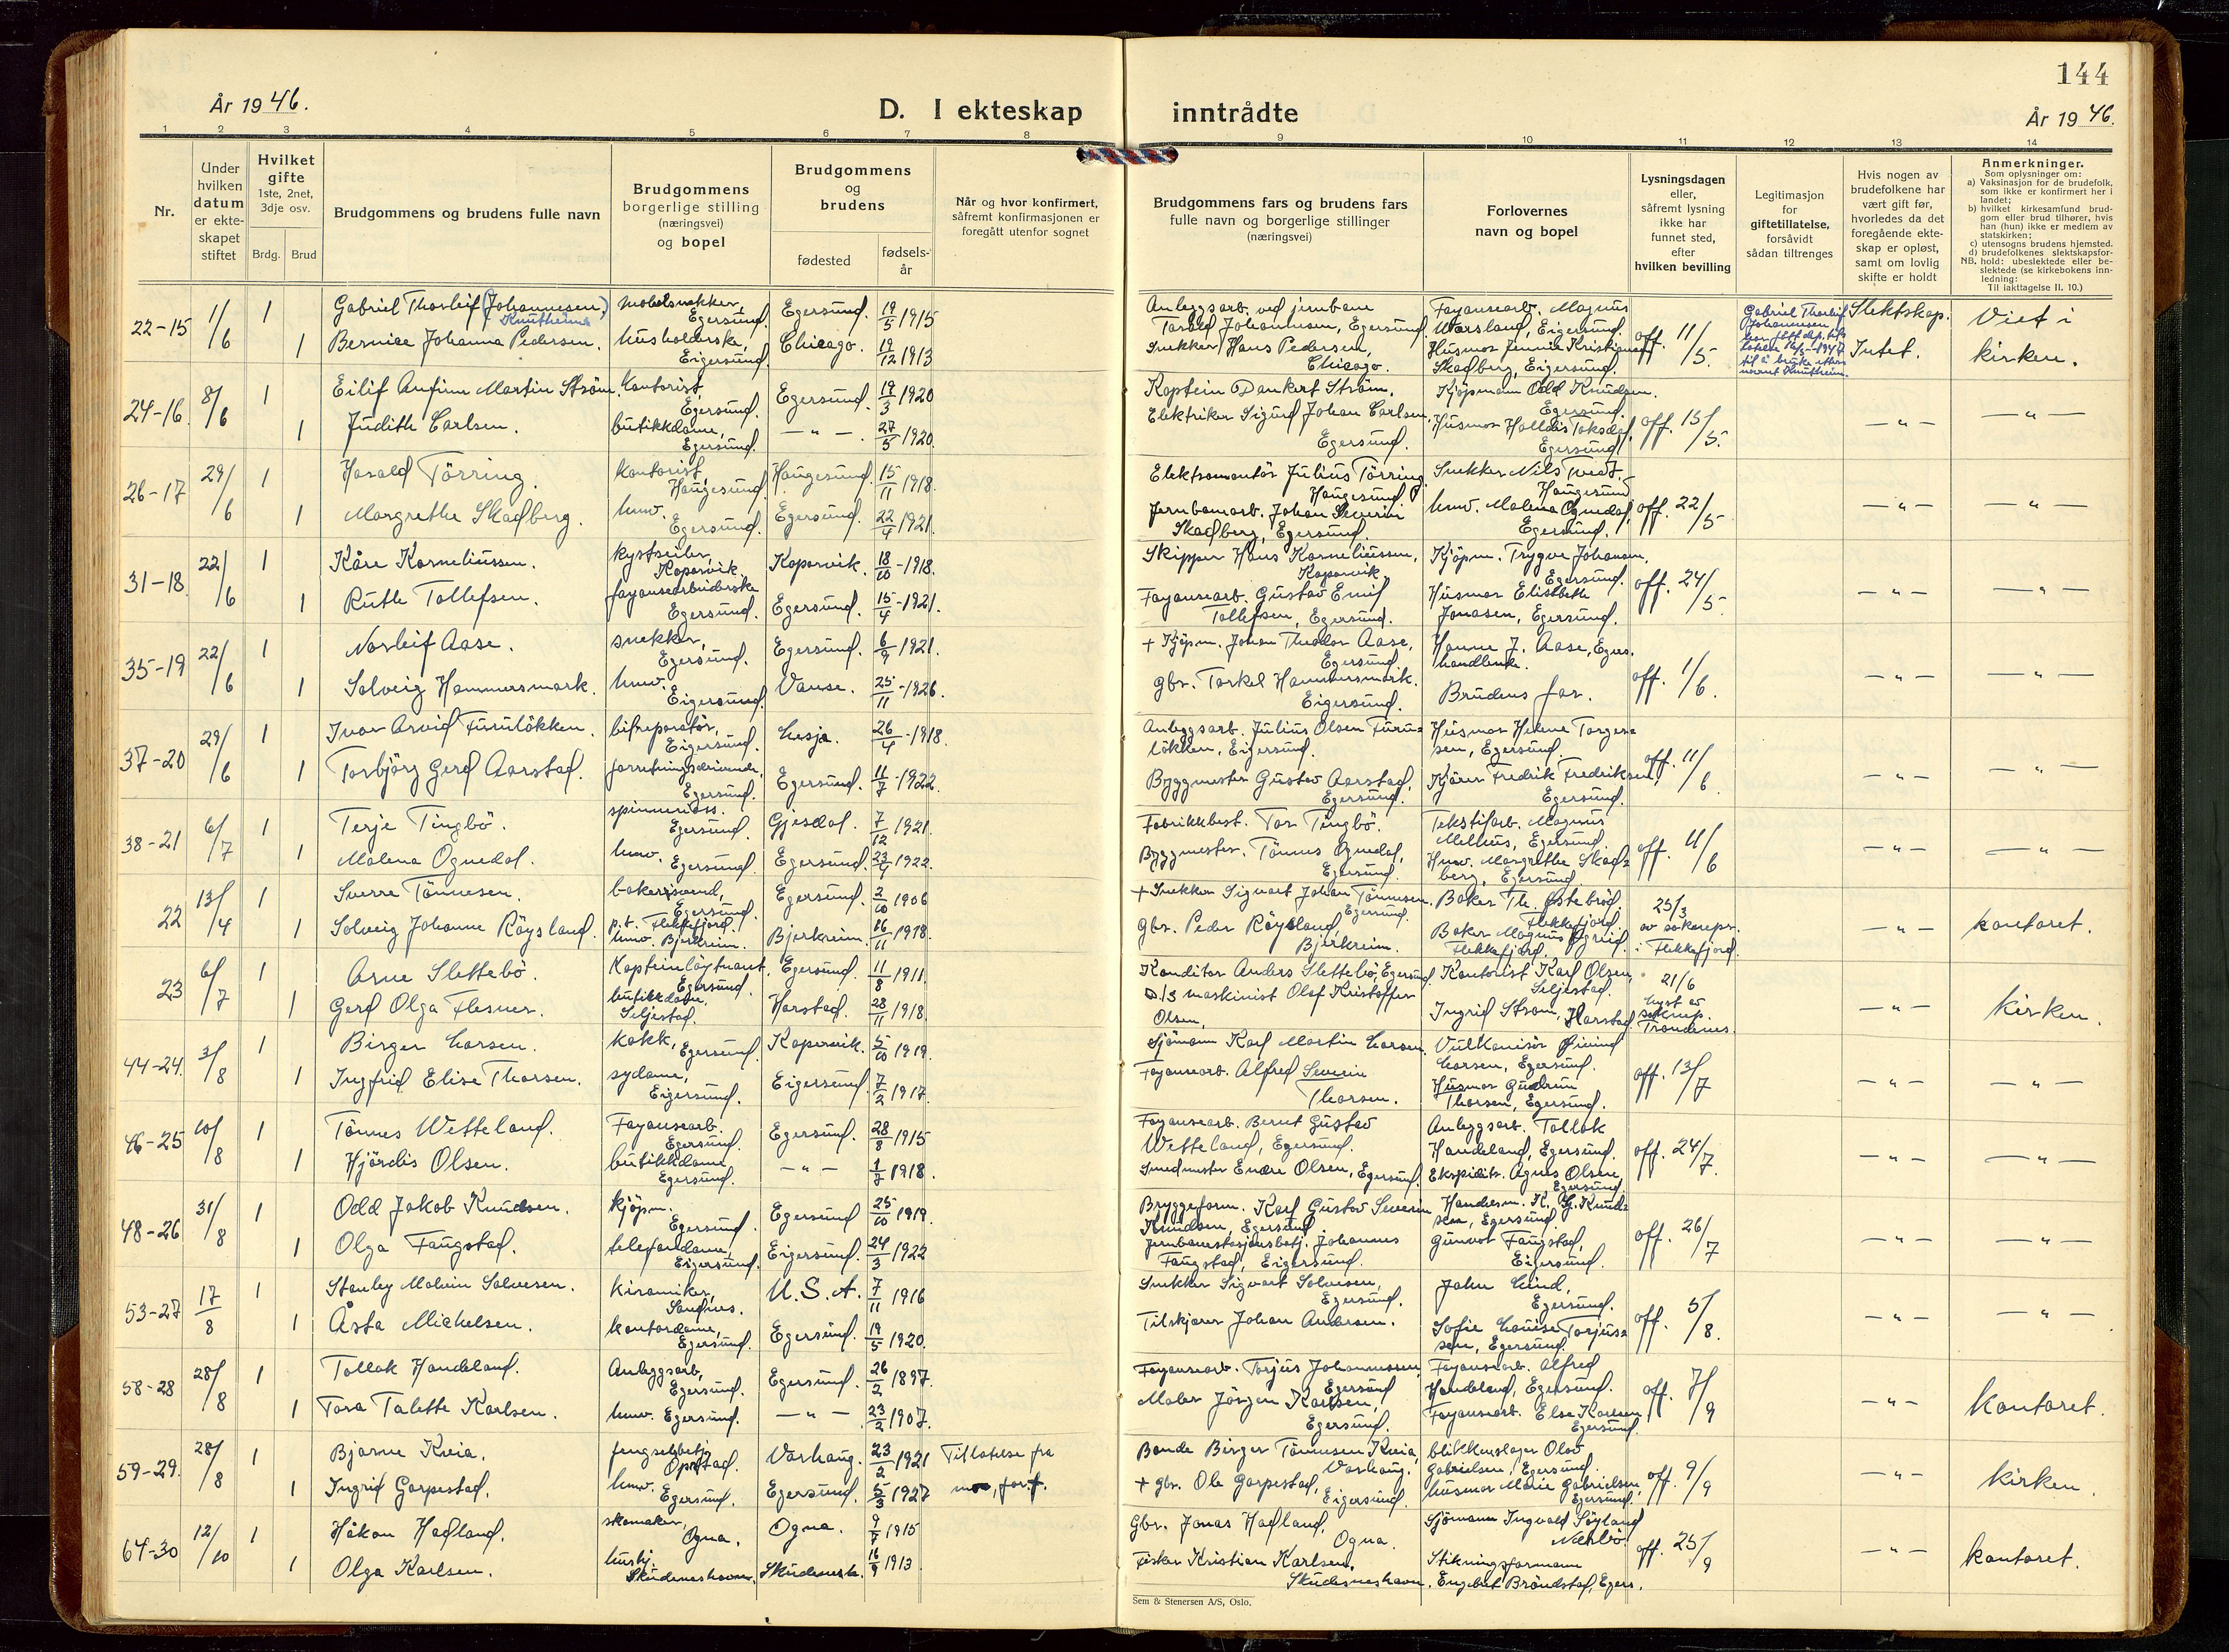 144
År 1946.
D. I ekteskap inntrådte
År 1946.
1 2 3 4 5 6 7 8 9 10 11 12 13 14
Nr.
Under hvilken datum er ekteskapet stiftet
Hvilket gifte 1ste, 2net, 3dje osv.
Brdg. Brud
Brudgommens og brudens fulle navn
Brudgommens borgerlige stilling (næringsvei) og bopel
Brudgommens og brudens
fødested
fødsels-år
Når og hvor konfirmert, såfremt konfirmasjonen er foregått utenfor sognet
Brudgommens fars og brudens fars fulle navn og borgerlige stillinger (næringsvei)
Forlovernes navn og bopel
Lysningsdagen eller, såfremt lysning ikke har funnet sted, efter hvilken bevilling
Legitimasjon for giftetillatelse, forsåvidt sådan tiltrenges
Hvis nogen av brudefolkene har vært gift før, hvorledes da det foregående ekteskap er opløst, samt om lovlig skifte er holdt
Anmerkninger.
Som oplysninger om:
a) Vaksinasjon for de brudefolk, som ikke er konfirmert her i landet;
b) hvilket kirkesamfund brudgom eller brud tilhører, hvis han (hun) ikke er medlem av statskirken;
c) utensogns brudens hjemsted.
d) brudefolkenes slektskapsforhold: ubeslektede eller beslektede (se kirkebokens innledning:
NB. Til iakttagelse II. 10.)
22-15 1/6 1 Gabriel Thorleif (Johannesen) Knutheim møbelsnekker, Egersund. Egersund. 19/5 1915 Anleggsarb. ved jernbane Torald Johannesen, Egersund. Fayansearb. Magnus Mørsland, Eigersund. off. 11/5 Gabriel Thorleif Johannesen Slektskap. Viet i
1 Bernice Johanna Pedersen. husholderske, Eigersund. Chicago. 19/12 1913 Snekker Hans Pedersen, Chicago. Husmor Jennie Kristiansen Skadberg, Eigersund. Intet. kirken.
24-16. 8/6 1 Eilif Anfinn Martin Strøm. kontorist, Egersund. Egersund. 19/3 1920 Kaptein Dankert Strøm. Kjøpmann Odd Knudsen. Egersund. off. 15/5. — " — — " —
1 Judith Carlsen. butikkdame, Egersund. — " —. 27/5 1920. Elektriker Sigurd Johan Carlsen, Egersund. Husmor Halldis Toksdal, Egersund
26-17 29/6 1 Harald Törring. kontorist, Haugesund Haugesund. 15/11 1918. Elektromontør Julius Törring. Haugesund. Snekker Nils Tvedt. Haugesund off. 22/5 — " — — " —
1 Margrethe Skadberg. husv. Egersund. Egersund. 22/4 1921. Jernbanearb. Johan Severin Skadberg, Egersund. husv. Malena Ognedal, Egersund.
31-18. 22/6 1 Kåre Korneliussen. kystseiler, Kopervik. Kopervik. 18/10-1918. Skipper Hans Korneliussen, Kopervik. Kjøpm. Trygve Johansen, Egersund. off. 24/5. — " — — " —
1 Ruth Tollefsen. fayansearbeiderske Egersund. Egersund. 15/4-1921. Fayansearb. Gustav Emil Tollefsen, Egersund. Husmor Elisabeth Jonasen, Egersund.
35-19 22/6 1 Norleif Aase. snekker, Egersund. Egersund. 6/9 1921. + Kjøpm. Johan Theodor Aase, Egersund. Hanne J. Aase, Egers. handlende. off. 1/6. — " — — " —
1 Solveig Hammersmark. husv. Eigersund. Vanse. 25/11-1926. gbr. Torkel Hammersmark. Eigersund. Brudens far.
37-20 29/6 1 Ivar Arvid Furuløkken. bilreparatør, Eigersund. Lesja. 26/4-1918. Anleggsarb. Julius Olsen Furuløkken, Eigersund. Husmor Helene Torgersen, Egersund off. 11/6 — " — — " —
1 Torbjørg Gerd Aarstad. forretningsdrivende, Egersund. Egersund. 11/7-1922. Byggmester Gustav Aarstad, Egersund. Kjører Fredrik Fredriksen, Egersund.
38-21 6/7 1 Terje Tingbø. spinneriass. Egersund. Gjesdal. 7/12 1921. Fabrikkbest. Tor Tingbø. Tekstilarb. Magnus Melhus, Egersund. off. 11/6 — " — — " —
1 Malena Ognedal. husv. Egersund. Egersund. 1922. Byggmester. Tönnes Ognedal, Egersund. Husv. Margrethe Skadberg, Egersund
22 13/4 1 Sverre Tönnesen. bakersvend, Egersund. p.t. Flekkefjord. Egersund. 2/10 1906 + Snekker Sigvart Johan Tönnesen. Egersund. Baker Th. Østebrød. Flekkefjord. 25/3 av sokneprs. i Flekkefjord. — " — kontoret.
1 Solveig Johanne Röysland. husv. Bjerkreim. Bjerkreim. 16/11 1918. Gbr. Peder Röysland, Bjerkreim. Baker Magnus Egreid. Flekkefjord.
23 6/7 1 Arne Slettebö. Kapteinløytnant. Egersund. Egersund. 11/8 1911. Konditor Anders Slettebö, Egersund. Kontorist Karl Olsen, Seljestad. 21/6 Lyst av sokneps. Trondenes. — " — kirken.
1 Gerd Olga Flesner. butikkdame. Seljestad. Harstad. 28/11 1918. D/S maskinist Olaf Kristoffer Olsen, Ingrid Strøm, Harstad
44-24. 3/8 1 Birger Larsen. kokk, Egersund. Kopervik. 5/10 1919. Sjømann Karl Martin Larsen. Vulkanisør Øivind Larsen, Egersund. off. 13/7 — " — — " —
1 Ingfrid Elise Thorsen. sydame, Eigersund. Eigersund. 7/2 1917. Fayansearb. Alfred Severin Thorsen. Husmor Gudrun Thorsen, Egersund.
46-25 10/8 1 Tönnes Wetteland. Fayansearb. Egersund. Egersund. 28/8 1915 Fayansearb. Bernt Gustav Wetteland, Egersund. Anleggsarb. Tollak Handeland, Egersund. off. 24/7. — " — — " —
1 Hjördis Olsen. butikkdame Egersund. — " — 1/7 1918. Smedmester Endre Olsen, Egersund. Ekspeditr. Agnes Olsen, Egersund.
48-26 31/8 1 Odd Jakob Knudsen. kjøpm. Egersund. Egersund 25/10 1919. Bryggeform. Karl Gustav Severin Knudsen, Egersund. Handelsm. K. G. Knudsen, Egersund. off. 26/7 — " — — " —
1 Olga Faugstad. telefondame, Eigersund. Eigersund. 24/3 1922 Jernbanestasjonsbetj. Johannes Faugstad, Eigersund. Gunvor Faugstad, Eigersund.
53-27 17/8 1 Stanley Malvin Salvesen. keramiker, Sandnes. U.S.A. 7/11 1916 Snekker Sigvart Salvesen, Egersund. John Lind, Egersund. off. 5/8. — " — — " —
1 Åsta Mickelsen. kontordame, Egersund. Egersund. 19/5 1920. Tilskjærer Johan Andersen. Sofie Louise Torjussen, Egersund.
58-28 28/8 1 Tollak Handeland. Anleggsarb, Egersund. Egersund. 26/2 1897. Fayansearb. Torjus Johannessen, Egersund Fayansearb. Alfred Handeland, Egersund. off. 7/9 — " — kontoret.
1 Tora Talette Karlsen. husv. Egersund. — " — 23/2 1907. Maler Jörgen Karlsen, Egersund. Fayansearb. Else Karlsen Egersund.
59-29. 28/8 1 Bjarne Kvia. fengselsbetj. Opstad. Varhaug. 23/2 1921 Tillatelse fra Bonde Birger Tönnesen Kvia, Varhaug. blikkenslager Olav Gabrielsen, Egersund. off. 9/9 — " — kirken.
1 Ingrid Gorpestad. husv. Egersund. Egersund. 5/3 1927 + gbr. Ole Gorpestad, Eigersund. husmor Marie Gabrielsen, Egersund.
64-30 12/10 1 Håkon Hadland. skomaker, Ogna. Ogna. 9/7 1915 Gbr. Jonas Hadland, Ogna. Sjømann Ingvald Söyland off. 25/9 — " — kontoret.
1 Olga Karlsen. hushj. Skudeneshavn. Skudenesh. 16/9 1913. Fisker Kristian Karlsen, Skudeneshavn. Stikningsformann Engebret Bröndstad, Egers.
Sem & Stenersen A/S, Oslo.